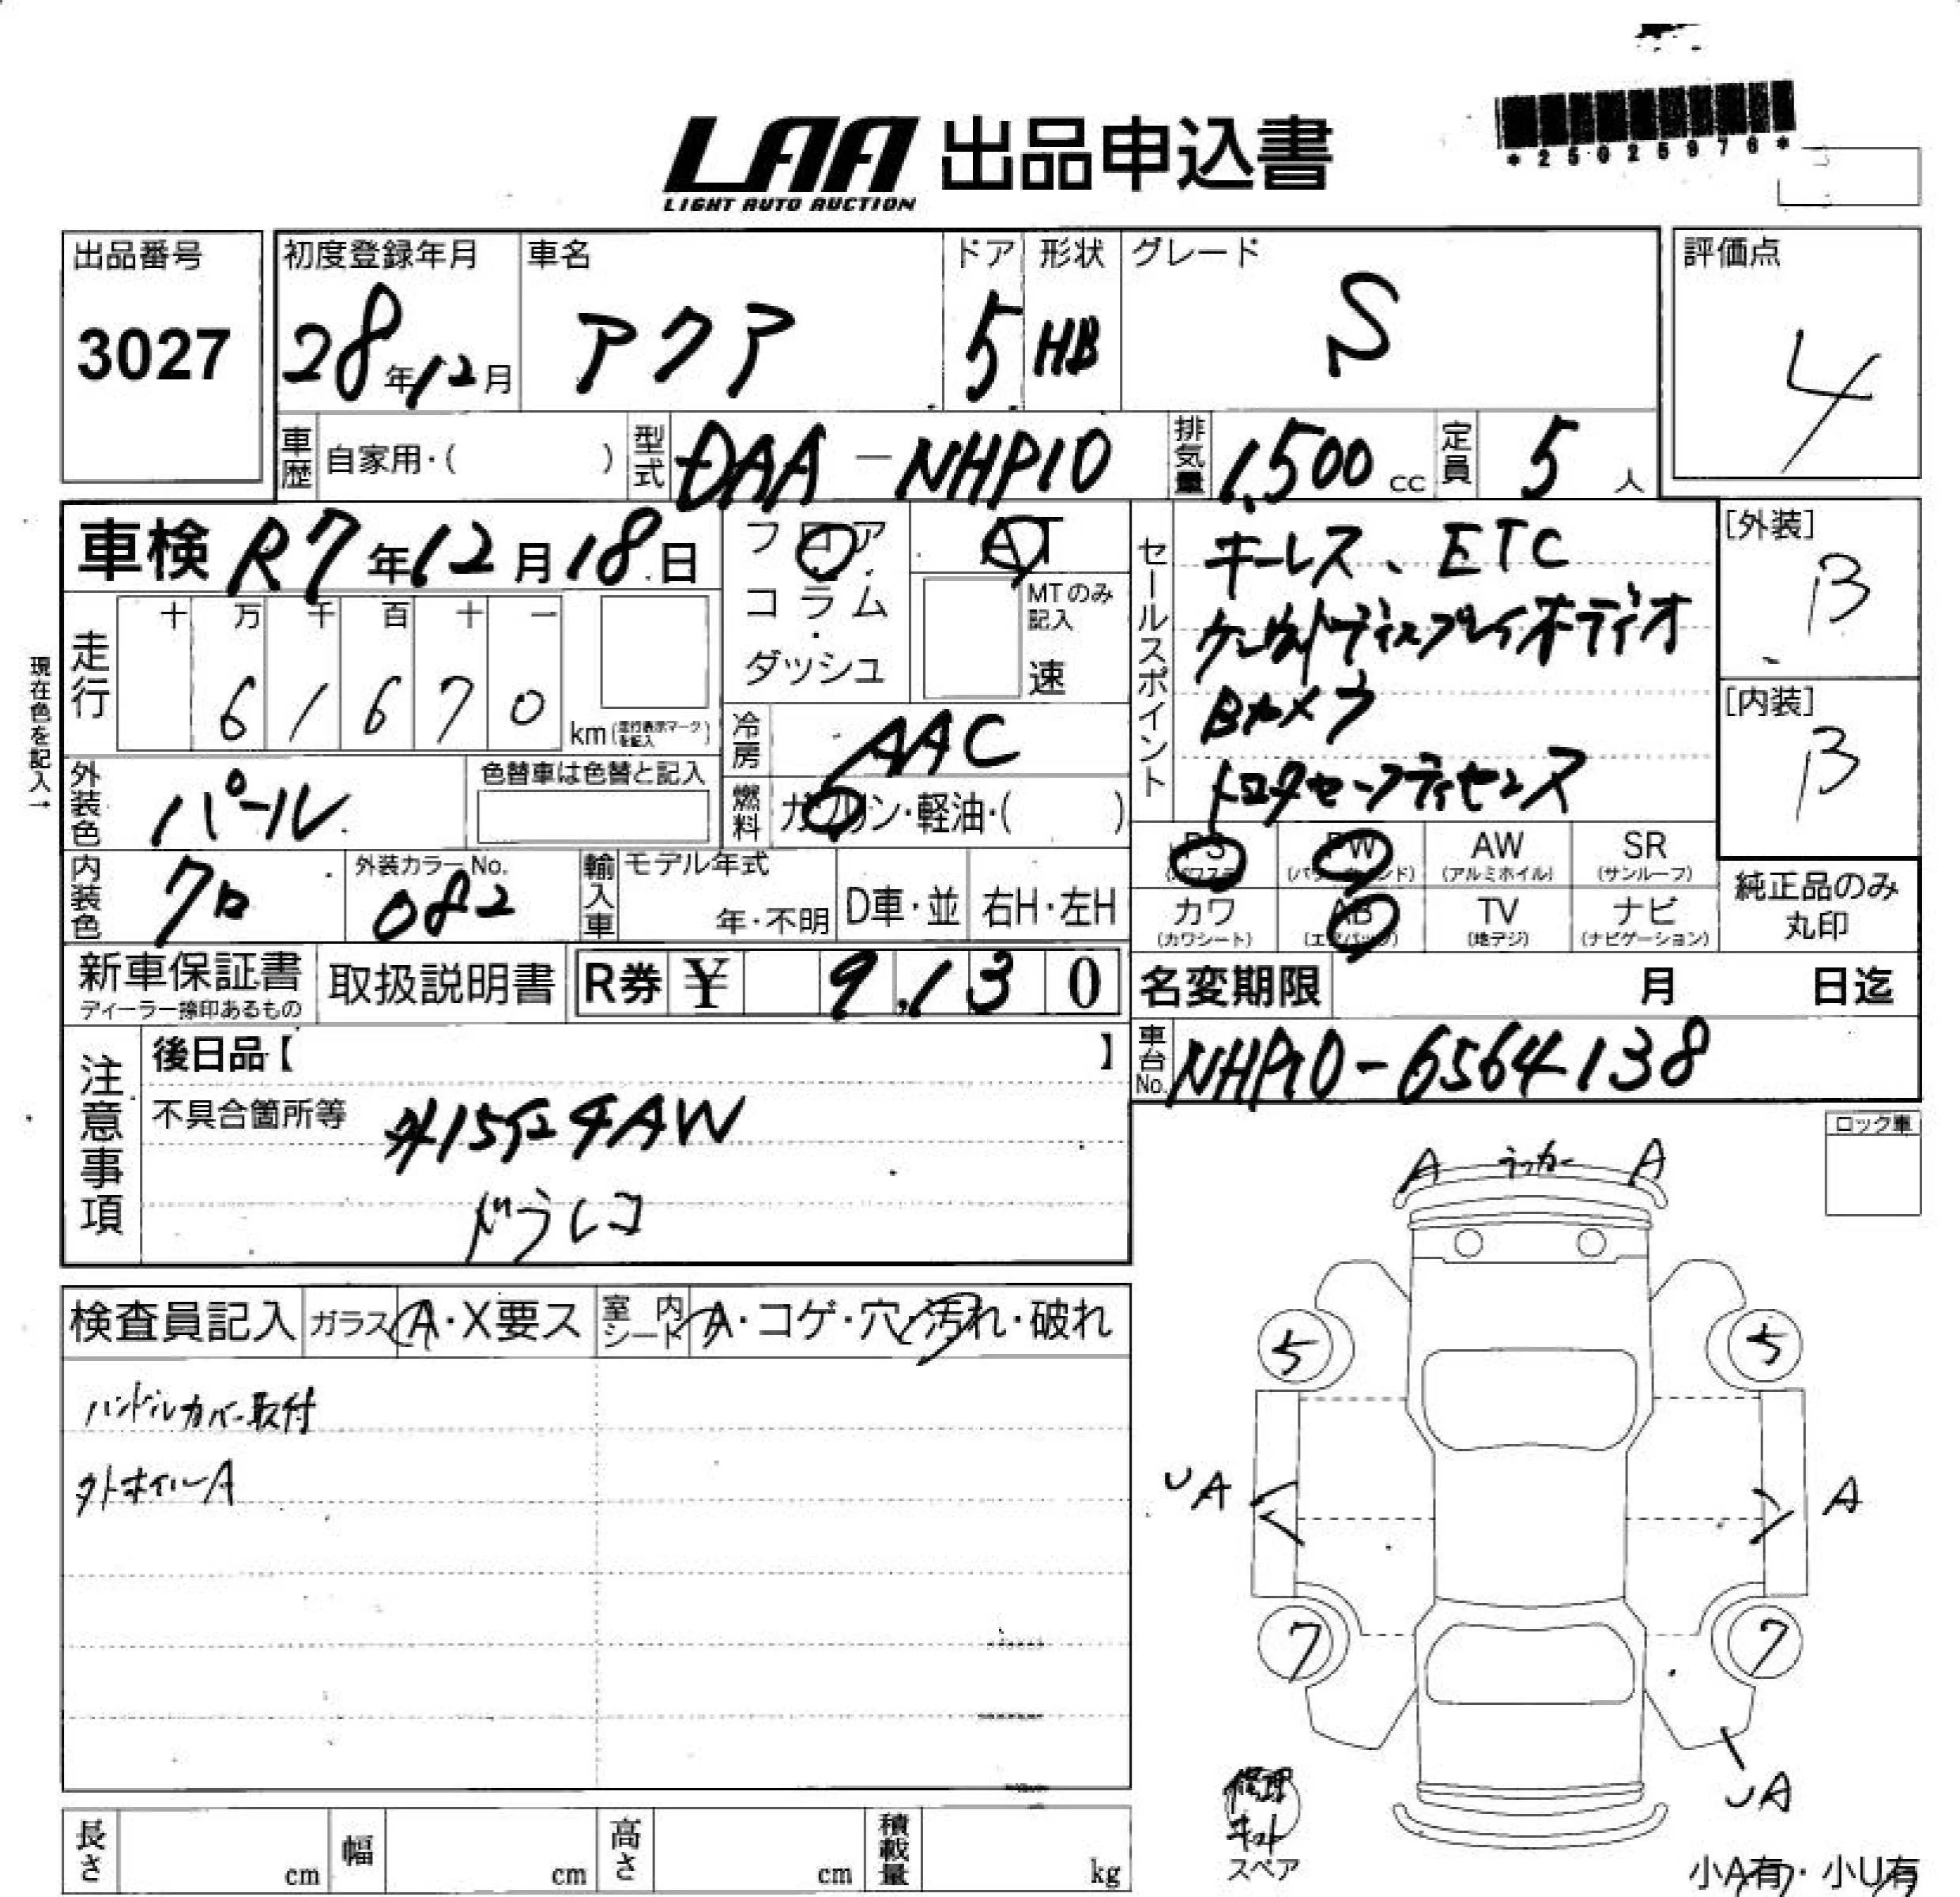 LAA 出品申込書
LIGHT AUTO AUCTION
*25025976*
出品番号
3027
初度登録年月
28年12月
車名
アクア
ドア
5
形状
HB
グレード
S
評価点
4
車歴 自家用・( )
型式 DAA-NHP10
排気量 1,500 cc
定員 5 人
車検 R7年12月18日
フロア
・
コラム
・
ダッシュ
AT
MTのみ
記入
速
セールスポイント
キーレス、ETC
ケンウッドディスプレイオーディオ
Bカメラ
トヨタセーフティセンス
[外装]
B
[内装]
B
現在色を記入→
走行
十 万 千 百 十 一
6 1 6 7 0
km(走行表示マークを記入)
冷房 AAC
燃料 ガソリン・軽油・( )
外装色 パール
色替車は色替と記入
内装色 クロ
外装カラーNo.
082
輸入車
モデル年式
年・不明
D車・並
右H・左H
PS
(パワステ)
PW
(パワーウィンド)
AW
(アルミホイル)
SR
(サンルーフ)
カワ
(カワシート)
AB
(エアバッグ)
TV
(地デジ)
ナビ
(ナビゲーション)
純正品のみ
丸印
新車保証書
ディーラー捺印あるもの
取扱説明書
R券 ¥ 9,130
名変期限 月 日迄
注意事項
後日品【 】
車台No. NHP10-6564138
不具合箇所等 外15インチAW
ドラレコ
ロック車
検査員記入
ガラス A・X要ス
室内シート A・コゲ・穴・汚れ・破れ
ハンドルカバー取付
外ホイルA
A ラッカー A
5 5
UA A
7 7
UA
修理
キット
スペア
小A有・小U有
長さ cm
幅 cm
高さ cm
積載量 kg